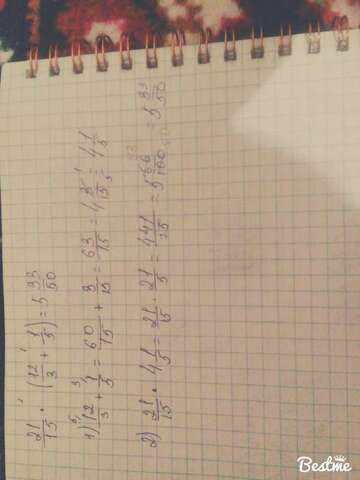 21/15 · (12/3 + 1/5) = 5 33/50
1) 12/3 + 1/5 = 60/15 + 3/15 = 63/15 = 4 3/15 = 4 1/5
2) 21/15 · 4 1/5 = 21/15 · 21/5 = 441/75 = 5 66/100 = 5 33/50
Bestme